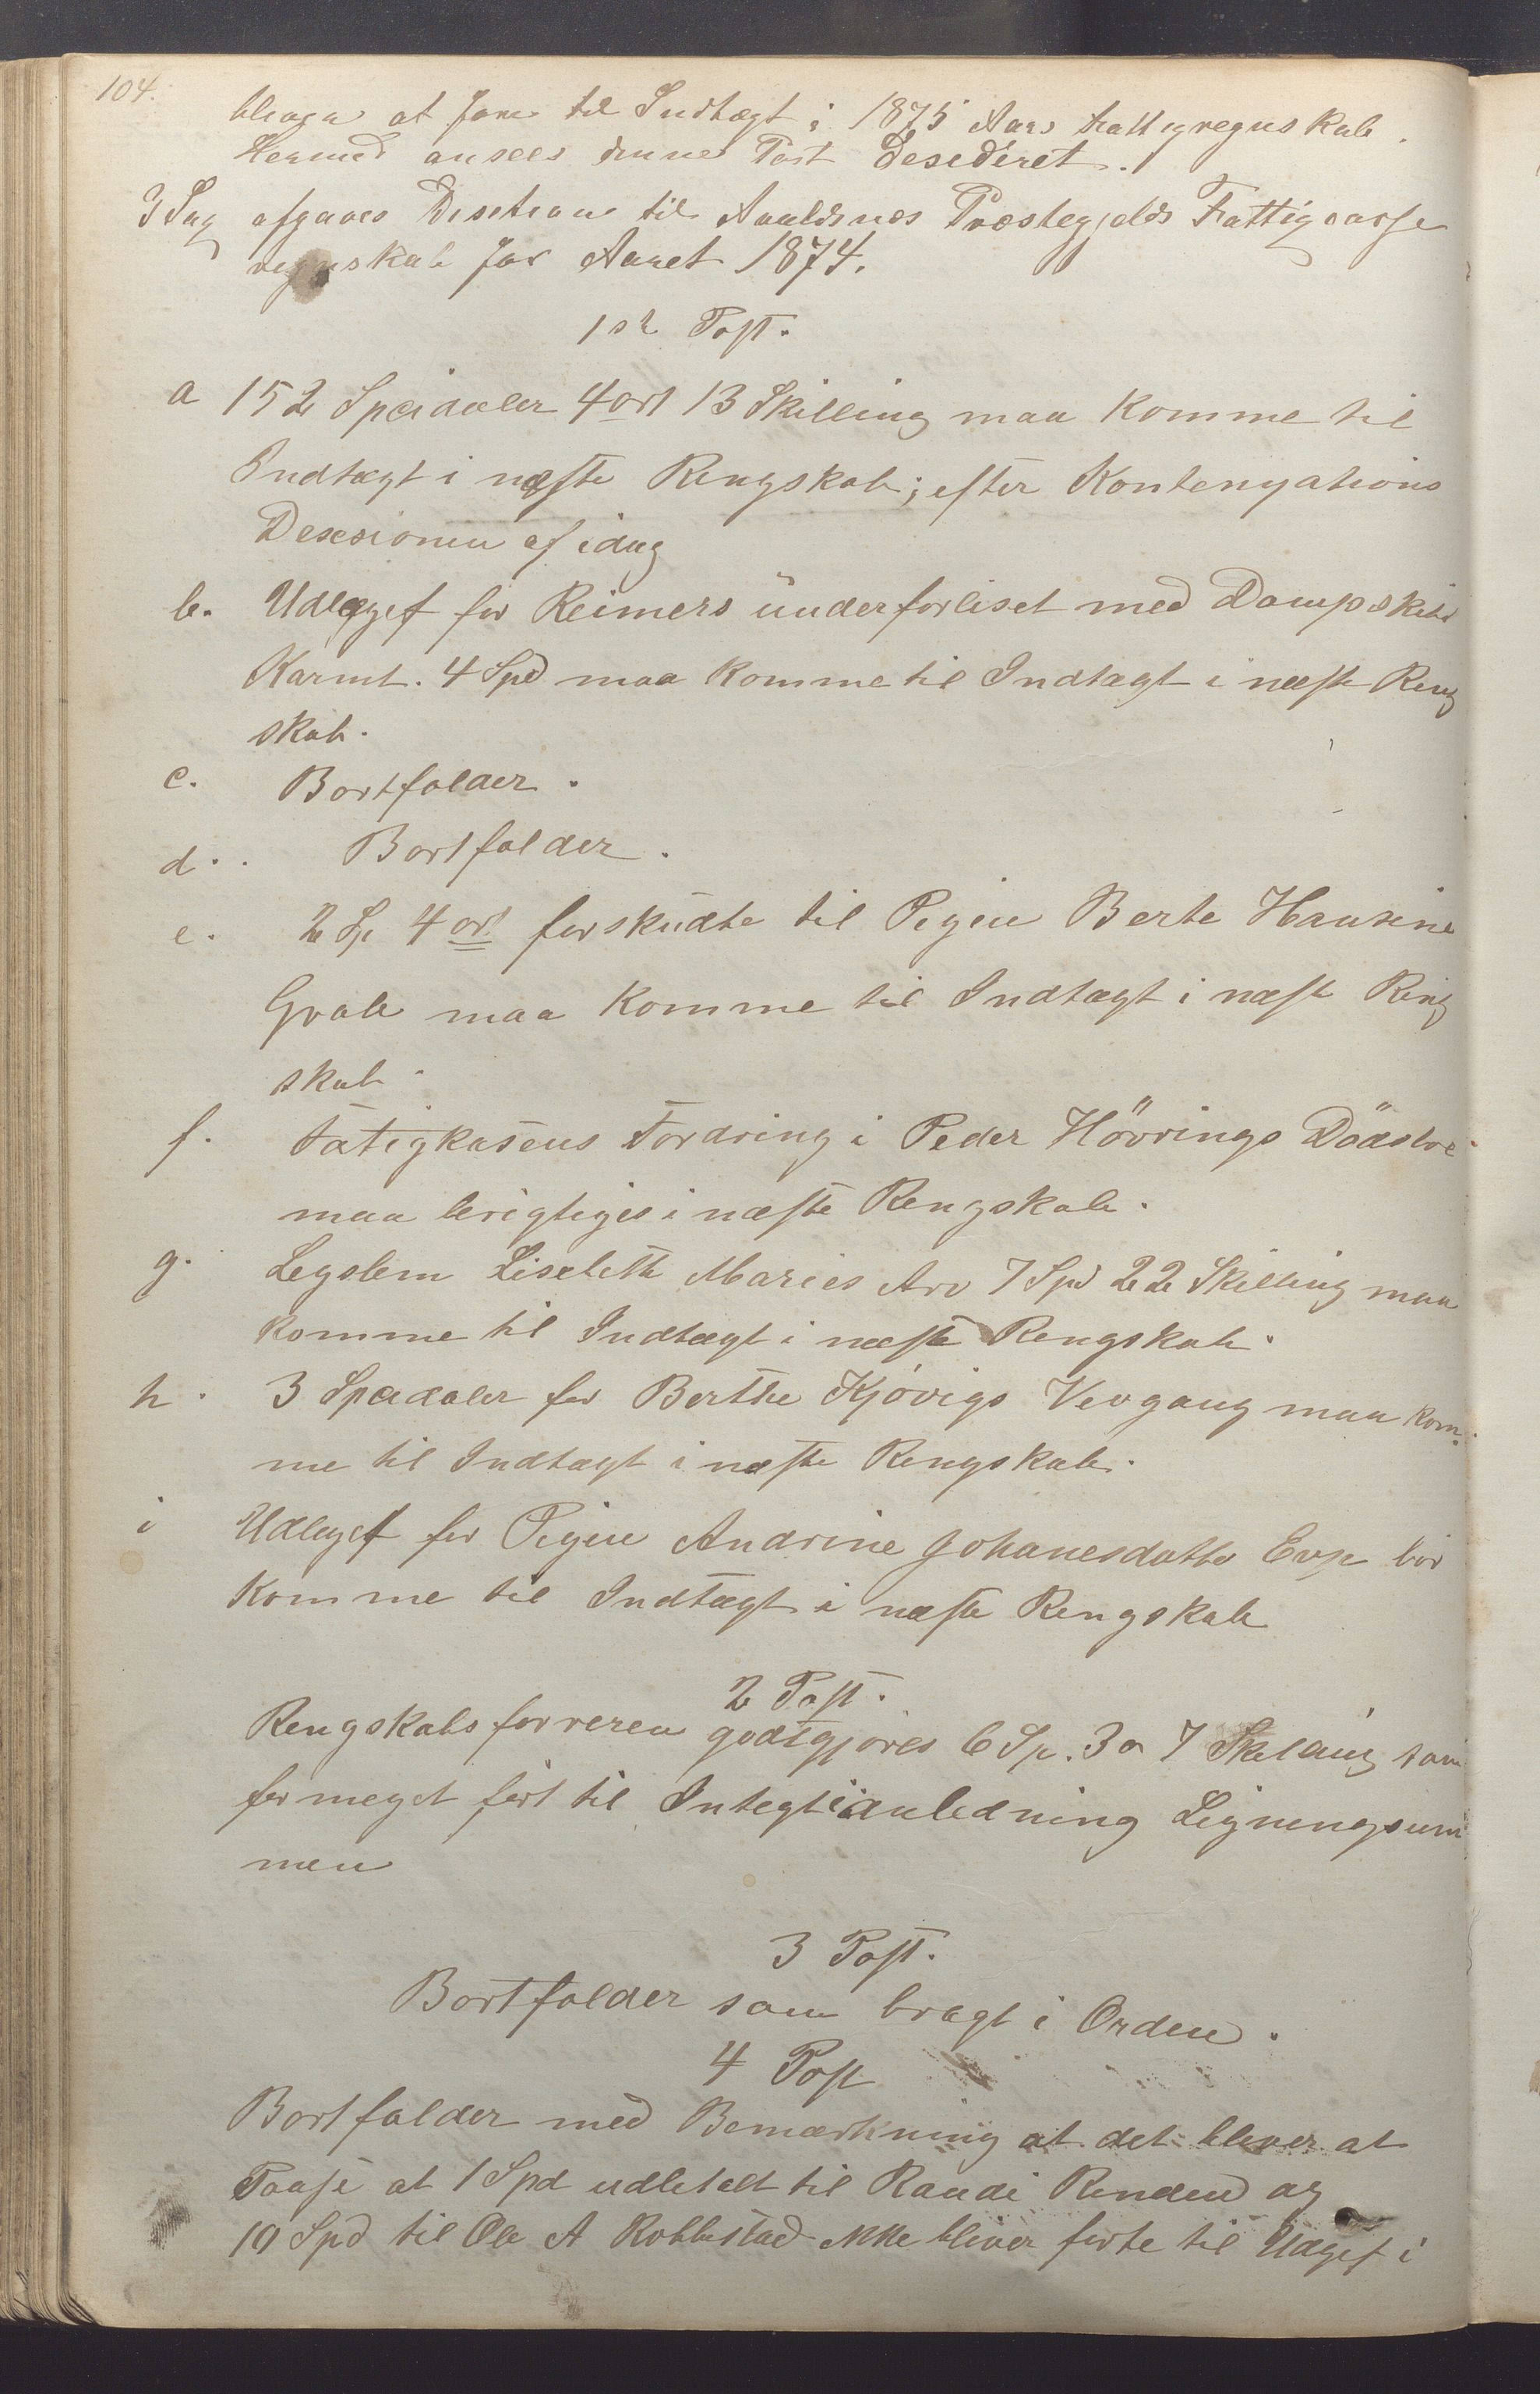 104.
at føre til Indtægt i 1875 Aars Fattigregnskab.
Hermed ansees denne Post Desederet.
3 Sag afgaves Desetion til Avaldsnes Præstegjelds Fattigcasse
regnskab for Aaret 1874.
1ste Post.
a 152 Speidaler 4 ort 13 Skilling maa Komme til
Indtægt i næste Rengskab; efter Kontenyations
Desesionen af idag
b. Udlæget for Reimers under forliset med Dampskibd
Karmt. 4 Spd maa Komme til Indtægt i næste Reng
skab.
c. Bortfalder.
d. Bortfalder.
e. 2 Sp 4 ort forskudte til Pigen Berte Hansine
Gvale maa Komme til Indtægt i næste Reng
skab.
f. Fatigkasens Fordring i Peder Hövrings Dödsboe
maa berigtiges i næste Rengskab.
g. Legslem Liselith Maries Arv 7 Spd 22 Skilling maa
Komme til Indtægt i næste Rengskab.
h. 3 Speidaler for Berthe Kjövigs Vevgang maa kom-
me til Indtægt i næste Rengskab.
i Udleget for Pigen Andrine Johanesdatter bör
Komme til Indtægt i næste Rengskab
2 Post.
Rengskabsföreren godtgjöres 6 Sp. 3 o 7 Skilling som
for meget fört til Integt i anledning Ligningsum
men
3 Post.
Bortfalder som bragt i Orden.
4 Post
Bortfalder med Bemærkning at det bliver at
Paase at 1 Spd udbetalt til Randi Renden og
10 Spd til Ole A Kolbestad ikke bliver förte til Udgift i